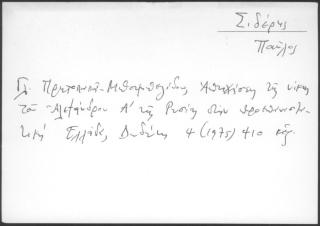 Σιδέρης
Παύλος
Γλ. Πρωτοπαπᾶ-Μπουμπουλίδου, Ἀπήχηση τῆς νίκης
τοῦ Ἀλεξάνδρου Α' τῆς Ρωσίας στὴν προεπαναστα-
τικὴ Ἑλλάδα, Δωδώνη 4 (1975) 410 κἑξ.